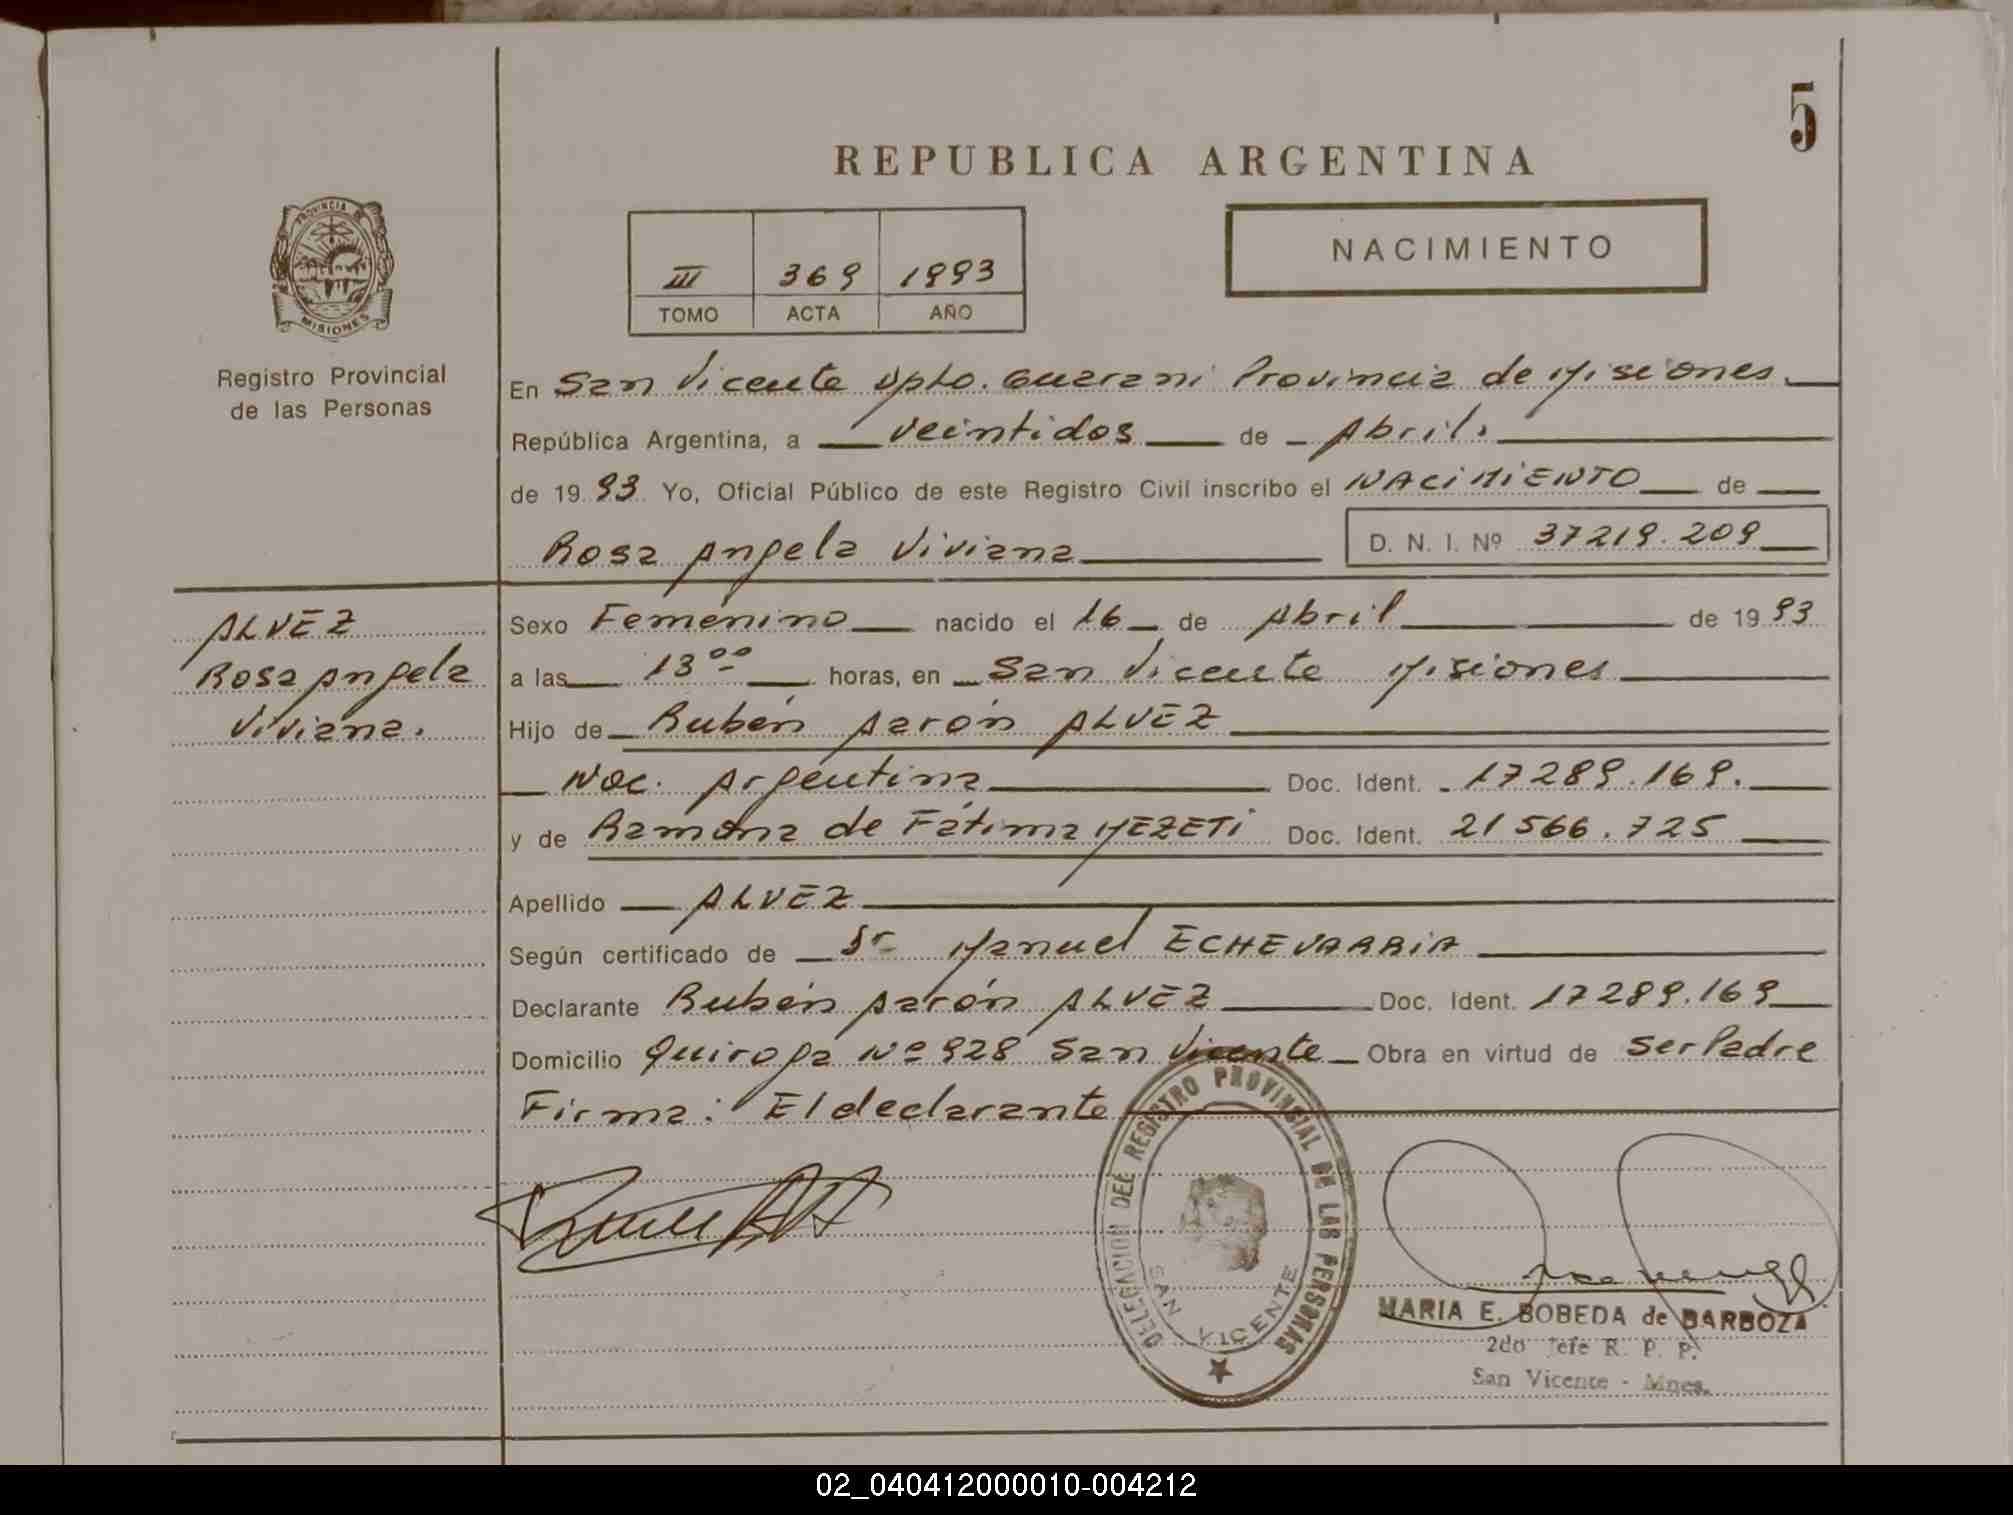 5
REPUBLICA ARGENTINA
PROVINCIA DE
MISIONES
Registro Provincial
de las Personas
III 369 1993
TOMO ACTA AÑO
NACIMIENTO
En San Vicente Dpto. Guarani Provincia de Misiones.
República Argentina, a veintidos de Abril.
de 19 93 Yo, Oficial Público de este Registro Civil inscribo el NACIMIENTO de
Rosa Angela Viviana D. N. I. Nº 37219.209
ALVEZ
Rosa Angela
Viviana.
Sexo Femenino nacido el 16 de Abril de 19 93
a las 13 00 horas, en San Vicente Misiones
Hijo de Rubén Aarón ALVEZ
Nac. Argentina Doc. Ident. 17289.169.
y de Ramona de Fátima MEZETI Doc. Ident. 21566.725
Apellido ALVEZ
Según certificado de Dr Manuel ECHEVARRIA
Declarante Rubén Aarón ALVEZ Doc. Ident. 17289.169
Domicilio Quiroga Nº 928 San Vicente Obra en virtud de ser Padre
Firma: El declarante
DELEGACION DEL REGISTRO PROVINCIAL DE LAS PERSONAS
SAN VICENTE
MARIA E. BOBEDA de BARBOZA
2do Jefe R. P. P.
San Vicente - Mnes.
02_040412000010-004212